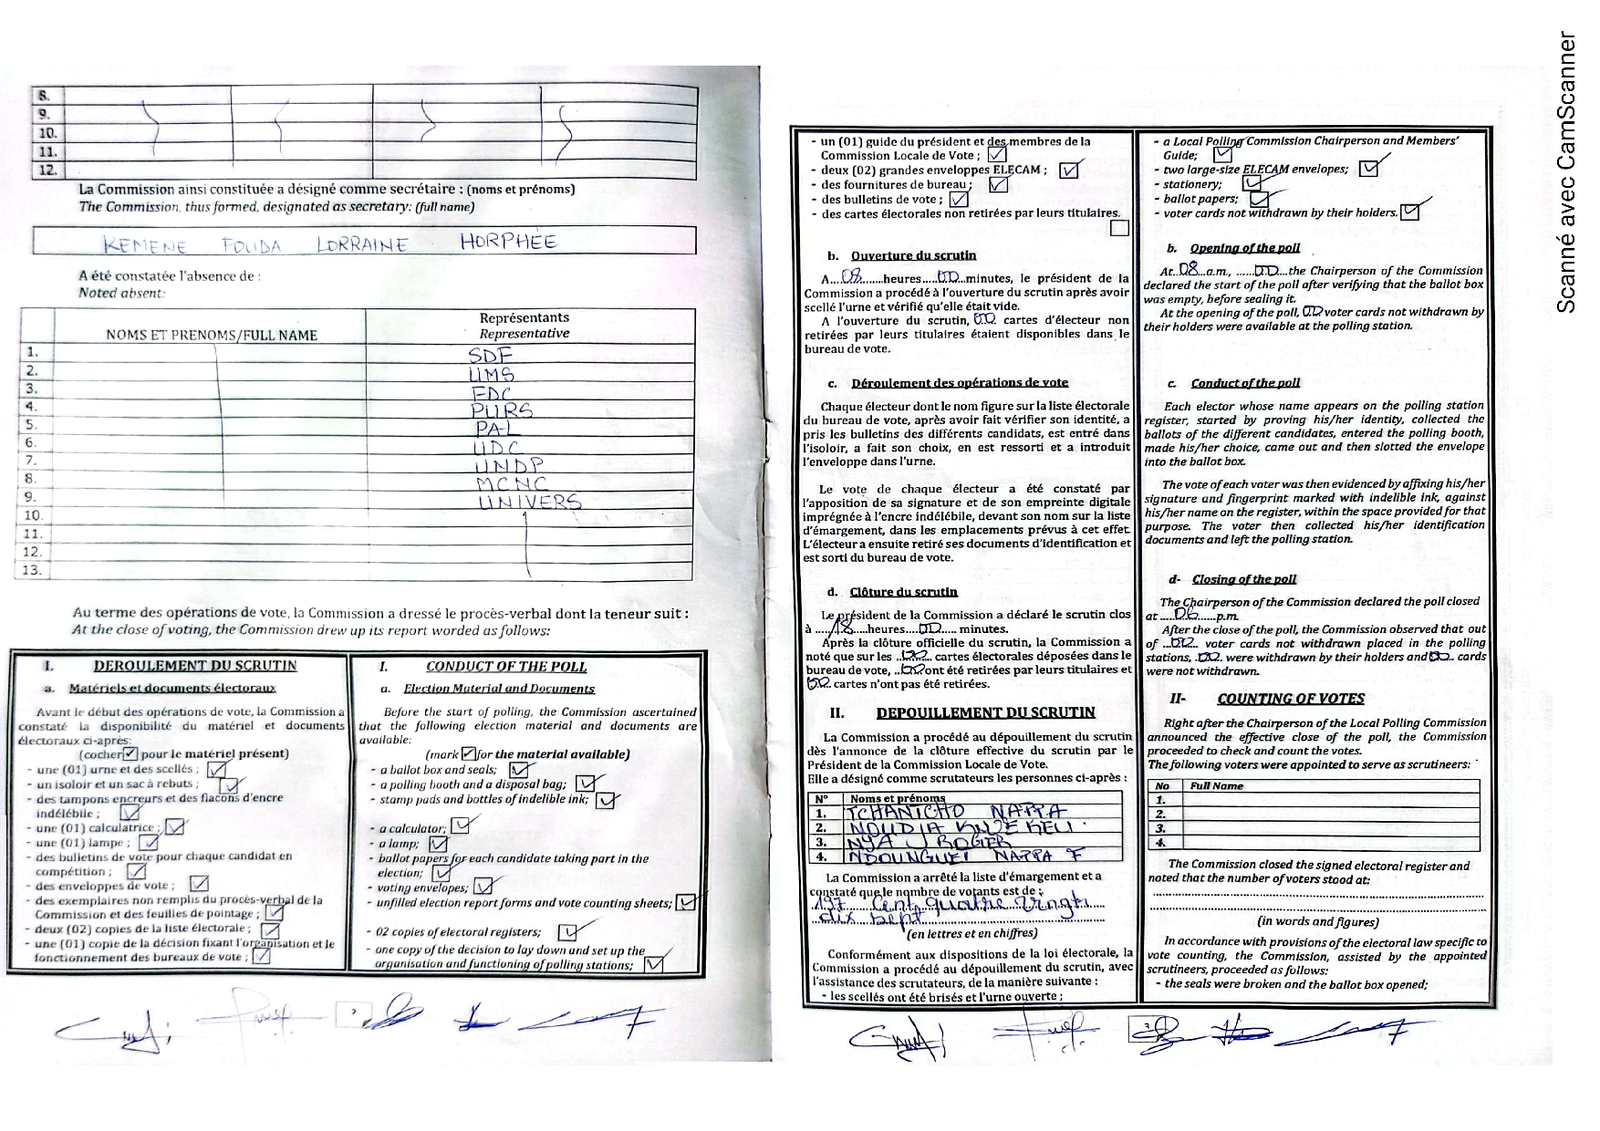 8.
9.
10.
11.
12.
La Commission ainsi constituée a désigné comme secrétaire : (noms et prénoms)
The Commission, thus formed, designated as secretary: (full name)
KEMENE FOUDA LORRAINE HORPHÉE
A été constatée l'absence de :
Noted absent:
NOMS ET PRENOMS/FULL NAME
Représentants
Representative
1. SDF
2. UMS
3. FDC
4. PURS
5. PAL
6. UDC
7. UNDP
8. MCNC
9. UNIVERS
10.
11.
12.
13.
Au terme des opérations de vote, la Commission a dressé le procès-verbal dont la teneur suit :
At the close of voting, the Commission drew up its report worded as follows:
I. DEROULEMENT DU SCRUTIN
a. Matériels et documents électoraux
Avant le début des opérations de vote, la Commission a
constaté la disponibilité du matériel et documents
électoraux ci-après:
(cocher ✓ pour le matériel présent)
- une (01) urne et des scellés ;
- un isoloir et un sac à rebuts ;
- des tampons encreurs et des flacons d'encre
indélébile ;
- une (01) calculatrice ;
- une (01) lampe ;
- des bulletins de vote pour chaque candidat en
compétition ;
- des enveloppes de vote ;
- des exemplaires non remplis du procès-verbal de la
Commission et des feuilles de pointage ;
- deux (02) copies de la liste électorale ;
- une (01) copie de la décision fixant l'organisation et le
fonctionnement des bureaux de vote ;
I. CONDUCT OF THE POLL
a. Election Material and Documents
Before the start of polling, the Commission ascertained
that the following election material and documents are
available:
(mark ✓ for the material available)
- a ballot box and seals;
- a polling booth and a disposal bag;
- stamp pads and bottles of indelible ink;
- a calculator;
- a lamp;
- ballot papers for each candidate taking part in the
election;
- voting envelopes;
- unfilled election report forms and vote counting sheets;
- 02 copies of electoral registers;
- one copy of the decision to lay down and set up the
organisation and functioning of polling stations;
- un (01) guide du président et des membres de la
Commission Locale de Vote ;
- deux (02) grandes enveloppes ELECAM ;
- des fournitures de bureau ;
- des bulletins de vote ;
- des cartes électorales non retirées par leurs titulaires.
b. Ouverture du scrutin
A...08......heures.....00..minutes, le président de la
Commission a procédé à l'ouverture du scrutin après avoir
scellé l'urne et vérifié qu'elle était vide.
A l'ouverture du scrutin, 00 cartes d'électeur non
retirées par leurs titulaires étaient disponibles dans le
bureau de vote.
c. Déroulement des opérations de vote
Chaque électeur dont le nom figure sur la liste électorale
du bureau de vote, après avoir fait vérifier son identité, a
pris les bulletins des différents candidats, est entré dans
l'isoloir, a fait son choix, en est ressorti et a introduit
l'enveloppe dans l'urne.
Le vote de chaque électeur a été constaté par
l'apposition de sa signature et de son empreinte digitale
imprégnée à l'encre indélébile, devant son nom sur la liste
d'émargement, dans les emplacements prévus à cet effet.
L'électeur a ensuite retiré ses documents d'identification et
est sorti du bureau de vote.
d. Clôture du scrutin
Le président de la Commission a déclaré le scrutin clos
à ....18....heures....00.... minutes.
Après la clôture officielle du scrutin, la Commission a
noté que sur les ..00... cartes électorales déposées dans le
bureau de vote, ..00..ont été retirées par leurs titulaires et
00.. cartes n'ont pas été retirées.
II. DEPOUILLEMENT DU SCRUTIN
La Commission a procédé au dépouillement du scrutin
dès l'annonce de la clôture effective du scrutin par le
Président de la Commission Locale de Vote.
Elle a désigné comme scrutateurs les personnes ci-après :
N° Noms et prénoms
1. TCHANTCHO NAPPA
2.
3. NYA J ROGER
4. NDOUNGUEI NAPPA F
La Commission a arrêté la liste d'émargement et a
constaté que le nombre de votants est de :
197 Cent quatre vingt
dix sept
(en lettres et en chiffres)
Conformément aux dispositions de la loi électorale, la
Commission a procédé au dépouillement du scrutin, avec
l'assistance des scrutateurs, de la manière suivante :
- les scellés ont été brisés et l'urne ouverte ;
- a Local Polling Commission Chairperson and Members'
Guide;
- two large-size ELECAM envelopes;
- stationery;
- ballot papers;
- voter cards not withdrawn by their holders.
b. Opening of the poll
At..08...a.m., ......00...the Chairperson of the Commission
declared the start of the poll after verifying that the ballot box
was empty, before sealing it.
At the opening of the poll, 00 voter cards not withdrawn by
their holders were available at the polling station.
c. Conduct of the poll
Each elector whose name appears on the polling station
register, started by proving his/her identity, collected the
ballots of the different candidates, entered the polling booth,
made his/her choice, came out and then slotted the envelope
into the ballot box.
The vote of each voter was then evidenced by affixing his/her
signature and fingerprint marked with indelible ink, against
his/her name on the register, within the space provided for that
purpose. The voter then collected his/her identification
documents and left the polling station.
d- Closing of the poll
The Chairperson of the Commission declared the poll closed
at .....06......p.m.
After the close of the poll, the Commission observed that out
of ..00.. voter cards not withdrawn placed in the polling
stations, 00.. were withdrawn by their holders and 00.. cards
were not withdrawn.
II- COUNTING OF VOTES
Right after the Chairperson of the Local Polling Commission
announced the effective close of the poll, the Commission
proceeded to check and count the votes.
The following voters were appointed to serve as scrutineers:
No Full Name
1.
2.
3.
4.
The Commission closed the signed electoral register and
noted that the number of voters stood at:
(in words and figures)
In accordance with provisions of the electoral law specific to
vote counting, the Commission, assisted by the appointed
scrutineers, proceeded as follows:
- the seals were broken and the ballot box opened;
Scanné avec CamScanner